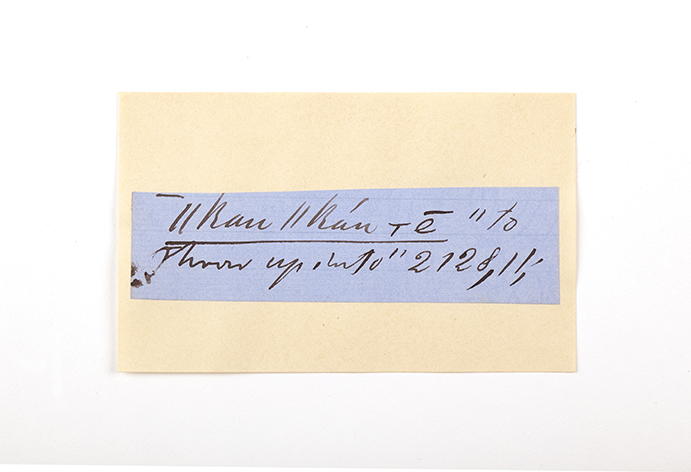 ‖kan ‖kán -ĕ "to
throw up into" 2128,11;